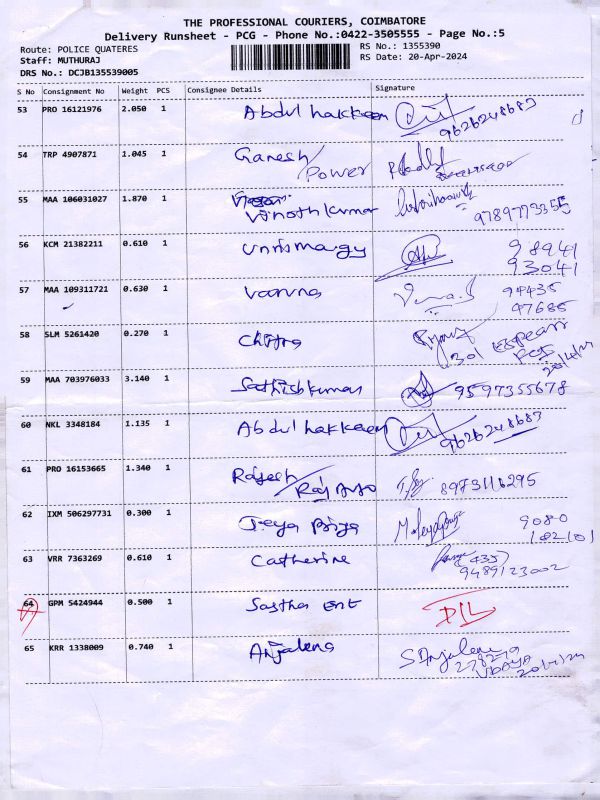 THE PROFESSIONAL COURIERS, COIMBATORE
Delivery Runsheet - PCG - Phone No.:0422-3505555 - Page No.:5
Route: POLICE QUATERES
RS No.: 1355390
Staff: MUTHURAJ
RS Date: 20-Apr-2024
DRS No.: DCJB135539005
S No Consignment No Weight PCS Consignee Details Signature
53 PRO 16121976 2.050 1 Abdul hakkeem
9626248683
54 TRP 4907871 1.045 1 Ganesh/
Power
55 MAA 106031027 1.870 1
Vinothkumar
9789773355
56 KCM 21382211 0.610 1 98941
93041
57 MAA 109311721 0.630 1 Varuna 94435
97685
58 SLM 5261420 0.270 1 Chitra
301
20/4/24
59 MAA 703976033 3.140 1 Sathishkumar 9597355678
60 NKL 3348184 1.135 1 Abdul hakkeem
9626248683
61 PRO 16153665 1.340 1 Rajesh/ 8973116295
62 IXM 506297731 0.300 1 Jeya Priya 9080
182101
63 VRR 7363269 0.610 1 Catherine (435)
9489123002
64 GPM 5424944 0.500 1 Sastha Ent
65 KRR 1338009 0.740 1 Anjalena S Anjalena
20/4/24